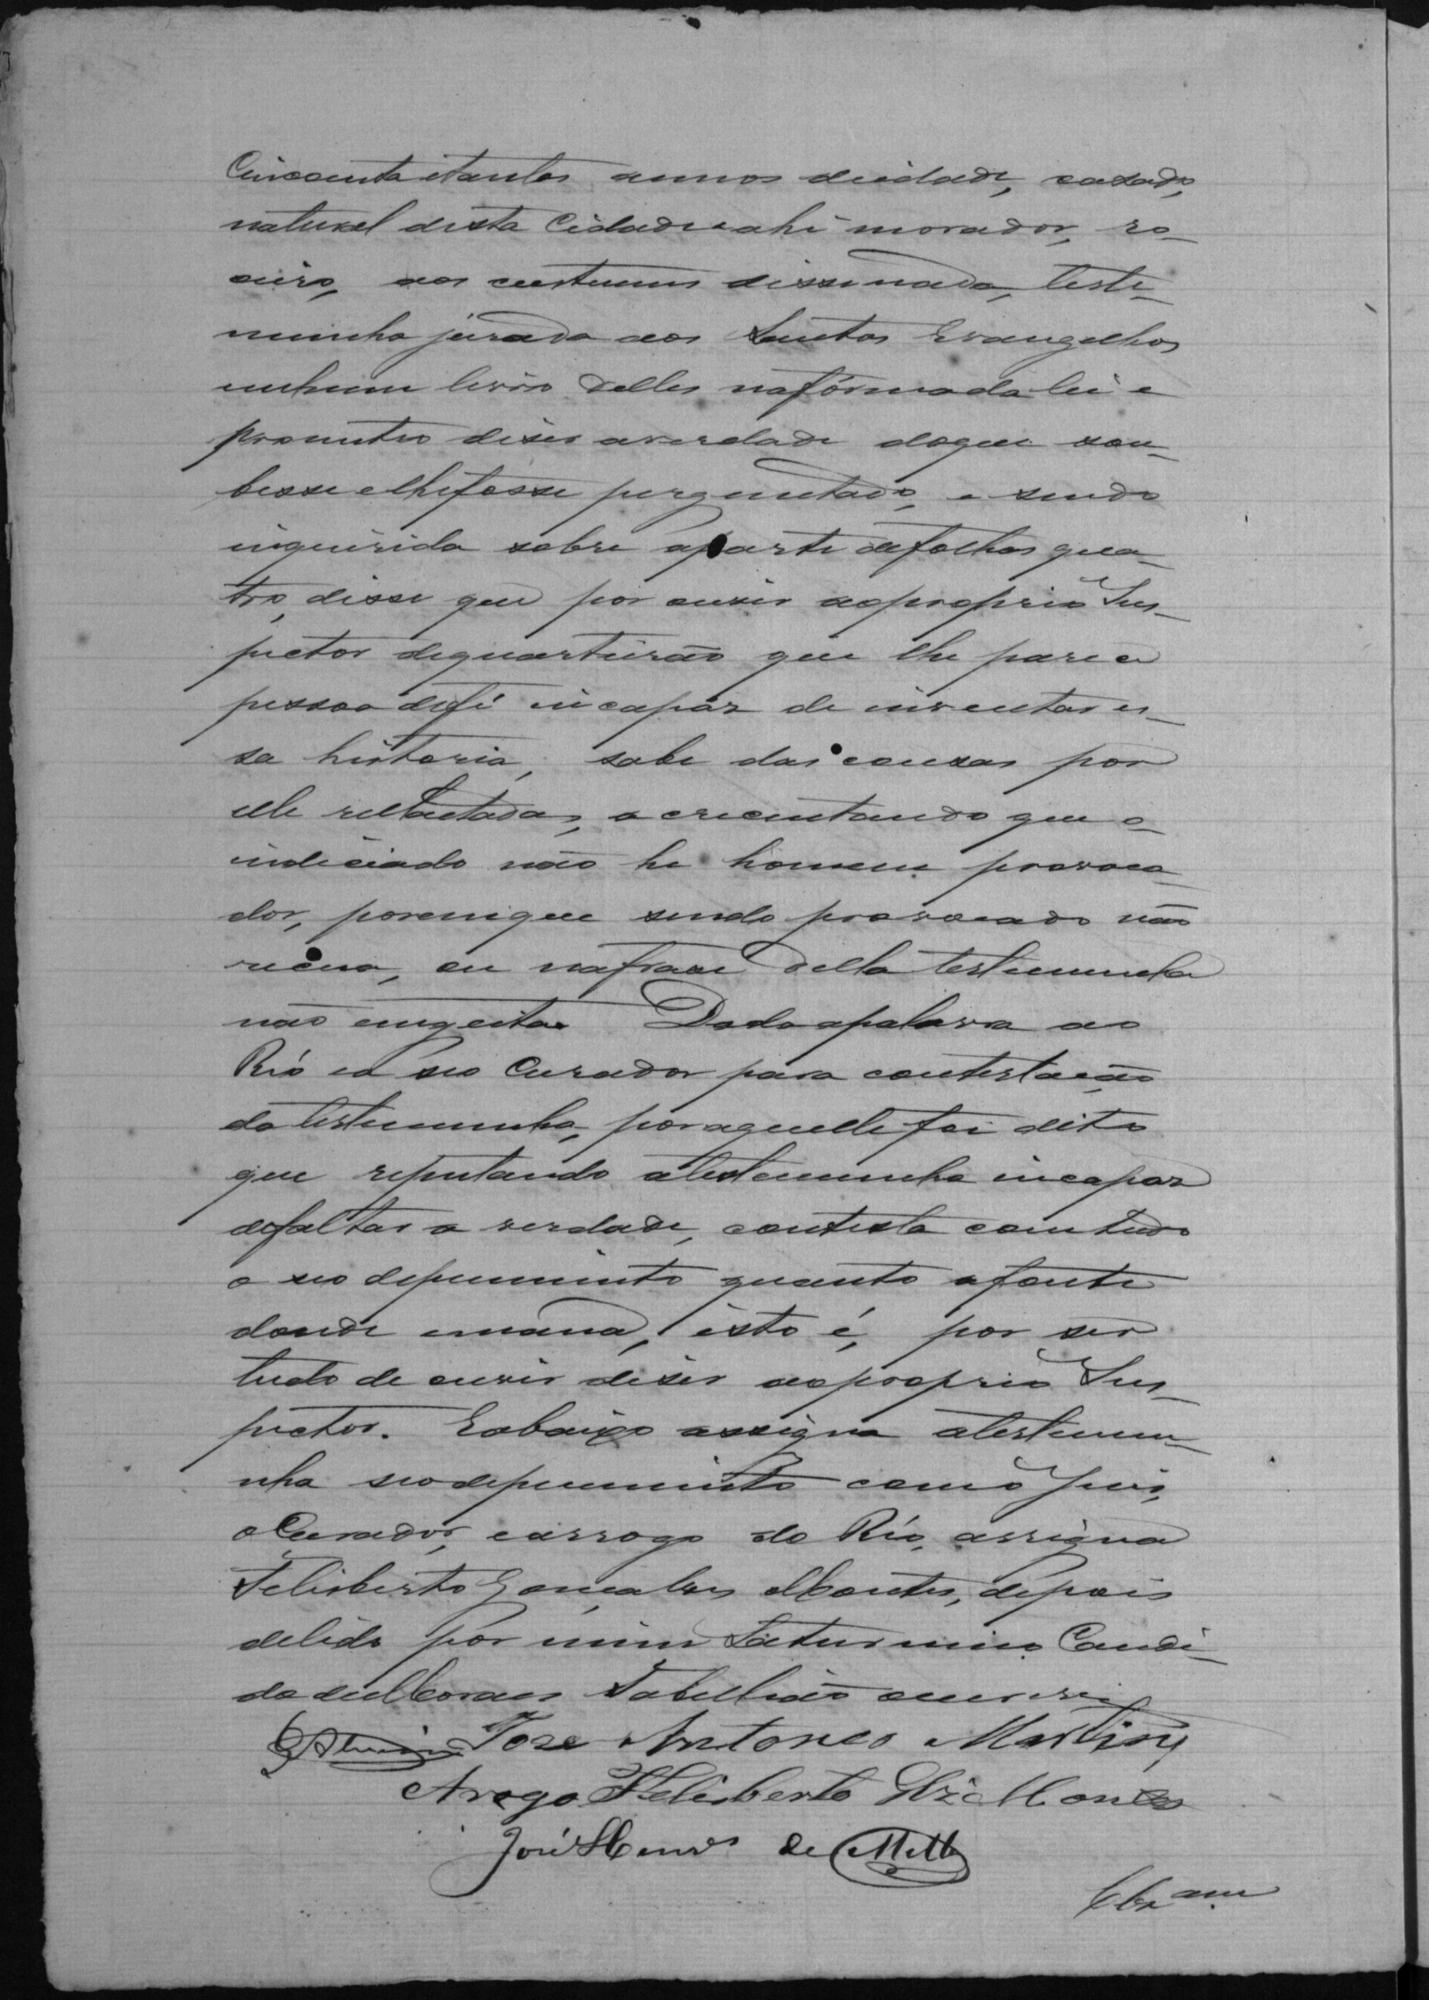 Cincoenta e tantos annos de idade, casado,
natural desta Cidade e ahi morador, ro-
ceiro, aos custumes disse nada, teste-
munha jurada aos Santos Evangelhos
em hum livro delles na fórma da lei e
prometeo diser a verdade do que sou-
besse e lhe fosse perguntado, e sendo
inquirida sobre a parte de folhas qua-
tro, disse que por ouvir ao proprio Ins-
pector de quarteirão que lhe parece
pessoa de fé incapaz de inventar es-
sa historia, sabe das cousas por
elle rellactadas, acrecentando que o
indiciado não he homem provoca-
dor, porem que sendo provocado não
recua, ou na frase della testemunha
não engeita. Dada a palavra ao
Réo e a seo Curador para contestação
da testemunha, por aquelle foi dito
que reputando a testemunha incapaz
de faltar a verdade, contesta comtudo
o seo depuimento quanto a fonte
donde emana, isto é, por ser
tudo de ouvir diser ao proprio Ins-
pector. E abaixo assigna a testemu-
nha seo depuimento com o Juiz,
o Curador, e a rrogo do Réo, assigna
Felisberto Gonçalves Montes, depois
de lido por mim Saturnino Candi-
do de Moraes Tabellião que escrevi
Jose Antonio Martins
Arogo Felisberto Glz Montes
José Henrs de Mello